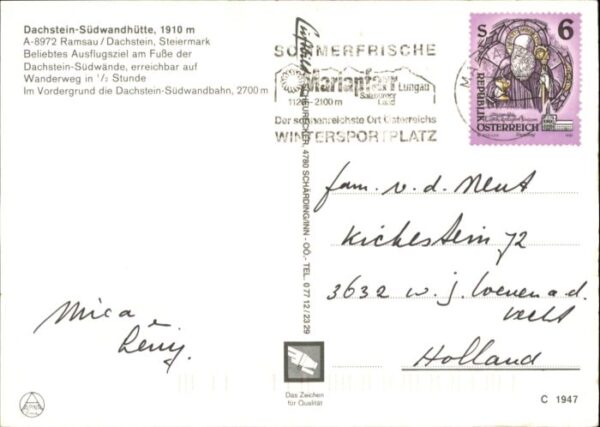 Dachstein-Südwandhütte, 1910 m
A-8972 Ramsau/Dachstein, Steiermark
Beliebtes Ausflugsziel am Fuße der
Dachstein-Südwände, erreichbar auf
Wanderweg in ½ Stunde
Im Vordergrund die Dachstein-Südwandbahn, 2700 m
SOMMERFRISCHE
Mariapfarr
Lungau
Salzburger
Land
1120-2100 m
Der sonnenreichste Ort Österreichs
WINTERSPORTPLATZ
S 6
REPUBLIK
ÖSTERREICH
4780 SCHÄRDING/INN - OÖ. - TEL. 0 77 12/23 29
fam. v. d. Neut
3632 w. j. Loenen a. d.
vecht
Holland
Mica
Das Zeichen
für Qualität
C 1947